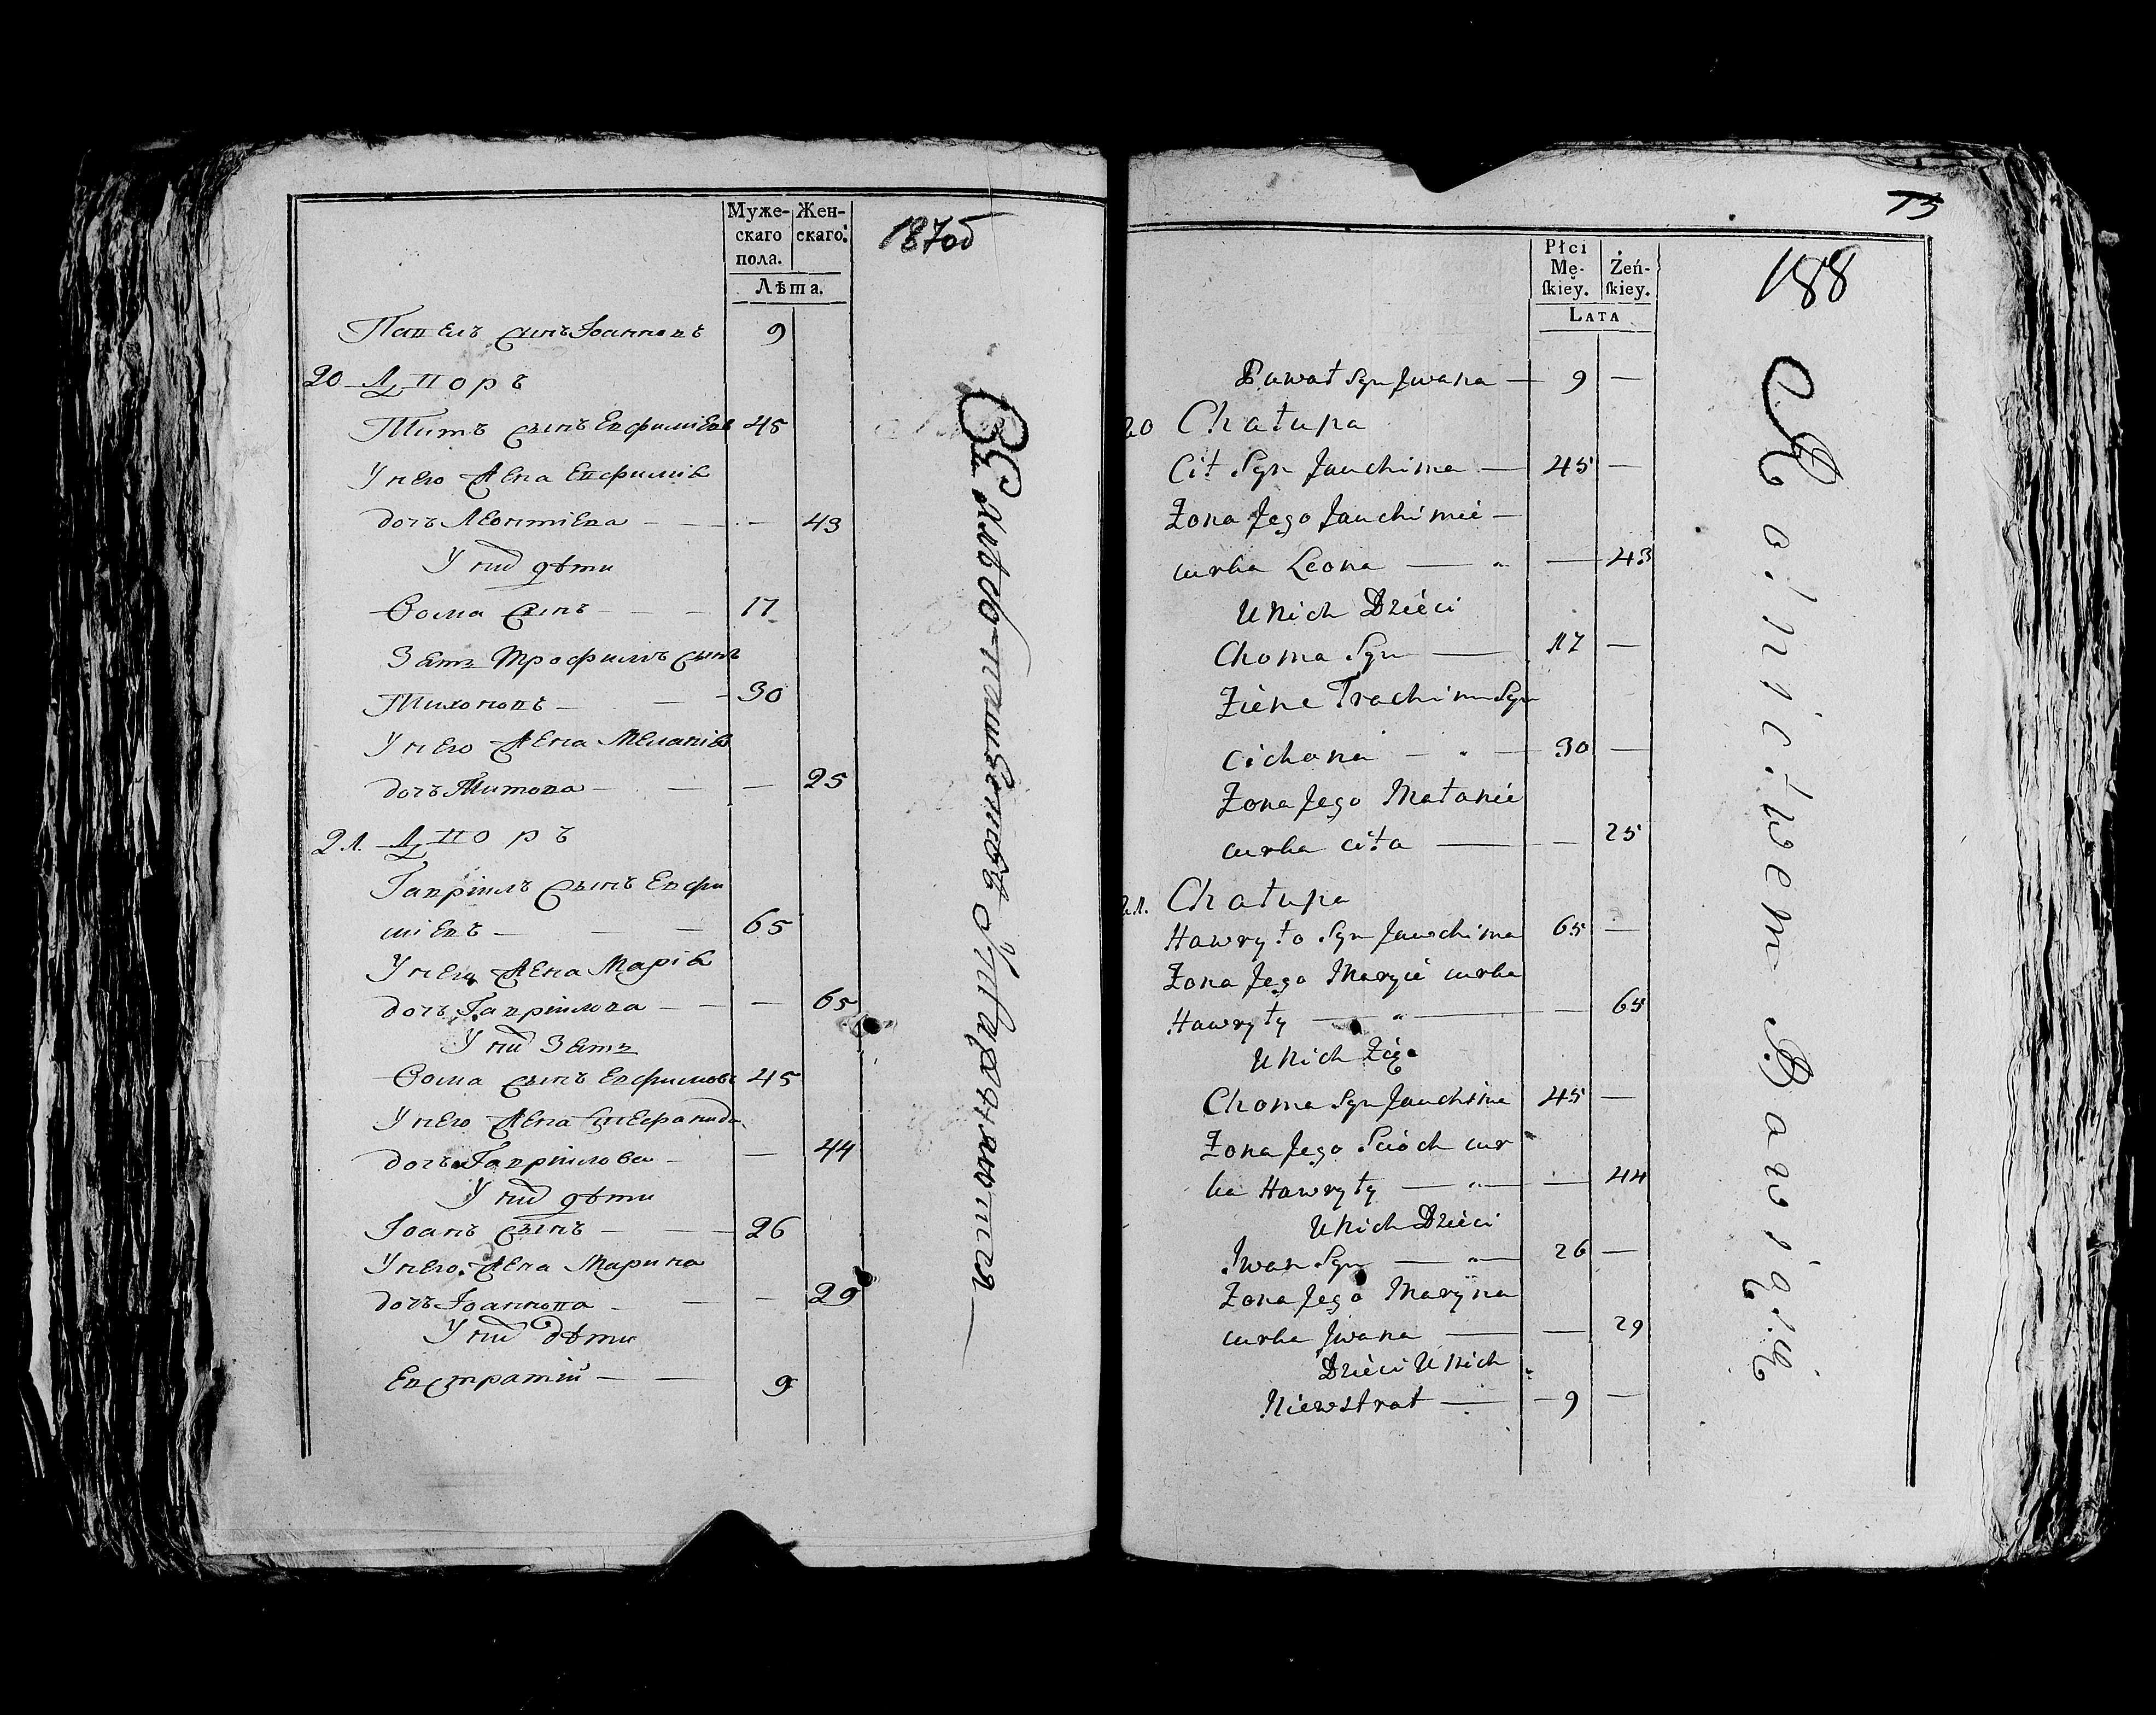 Муже-
скаго
пола.
Жен-
скаго.
Лѣта.
187об
Павелъ сынъ Іоанновъ 9
20 Дворъ
Титъ сынъ Евфиміевъ 45
У него жена Евфиміа
дочь Леонтіева — — 43
У них дѣти
Ѳома сынъ — — 17
Зять Трофимъ сынъ
Тихоновъ — — 30
У него жена Меланіа
дочь Титова — — — 25
21. Дворъ
Гавріилъ сынъ Евфи
міевъ — — — 65
У него жена Маріа
дочь Гавріилова — — — 65
У них Зять
Ѳома сынъ Евфимовъ 45
У него жена
дочь Гавріилова — — 44
У них дѣти
Іоанъ сынъ — — 26
У него жена Марина
дочь Іоаннова — — — 29
У них дѣти
Евстратій — — 9
Хлѣбопашествомъ Упражняются —
75
188
Płci
Mę-
ſkiey.
Żeń-
ſkiey.
Lata
Pawał Syn Jwana — 9 —
20 Chałupa
Cit Syn Jauchima — 45 —
Żona Jego Jauchimié —
curka Leona — — 43
U Nich Dziéci
Choma Syn — 17 —
Ziéne Trachim Syn
Cichona — — 30 —
Żona Jego Małanié
curka Cita — — 25
21. Chałupa
Hawryło Syn Jauchima 65 —
Żona Jego Maryié curka
Hawryły — — — 65
U Nich Zięć
Choma Syn Jauchima 45 —
Żona Jego Sciocha cur
ka Hawryły — — — 44
U Nich Dziéci
Jwan Syn — — 26 —
Żona Jego Maryna
curka Jwana — — 29
Dziéci U Nich
Niewstrat — — 9 —
Rolnictwem Bawią się